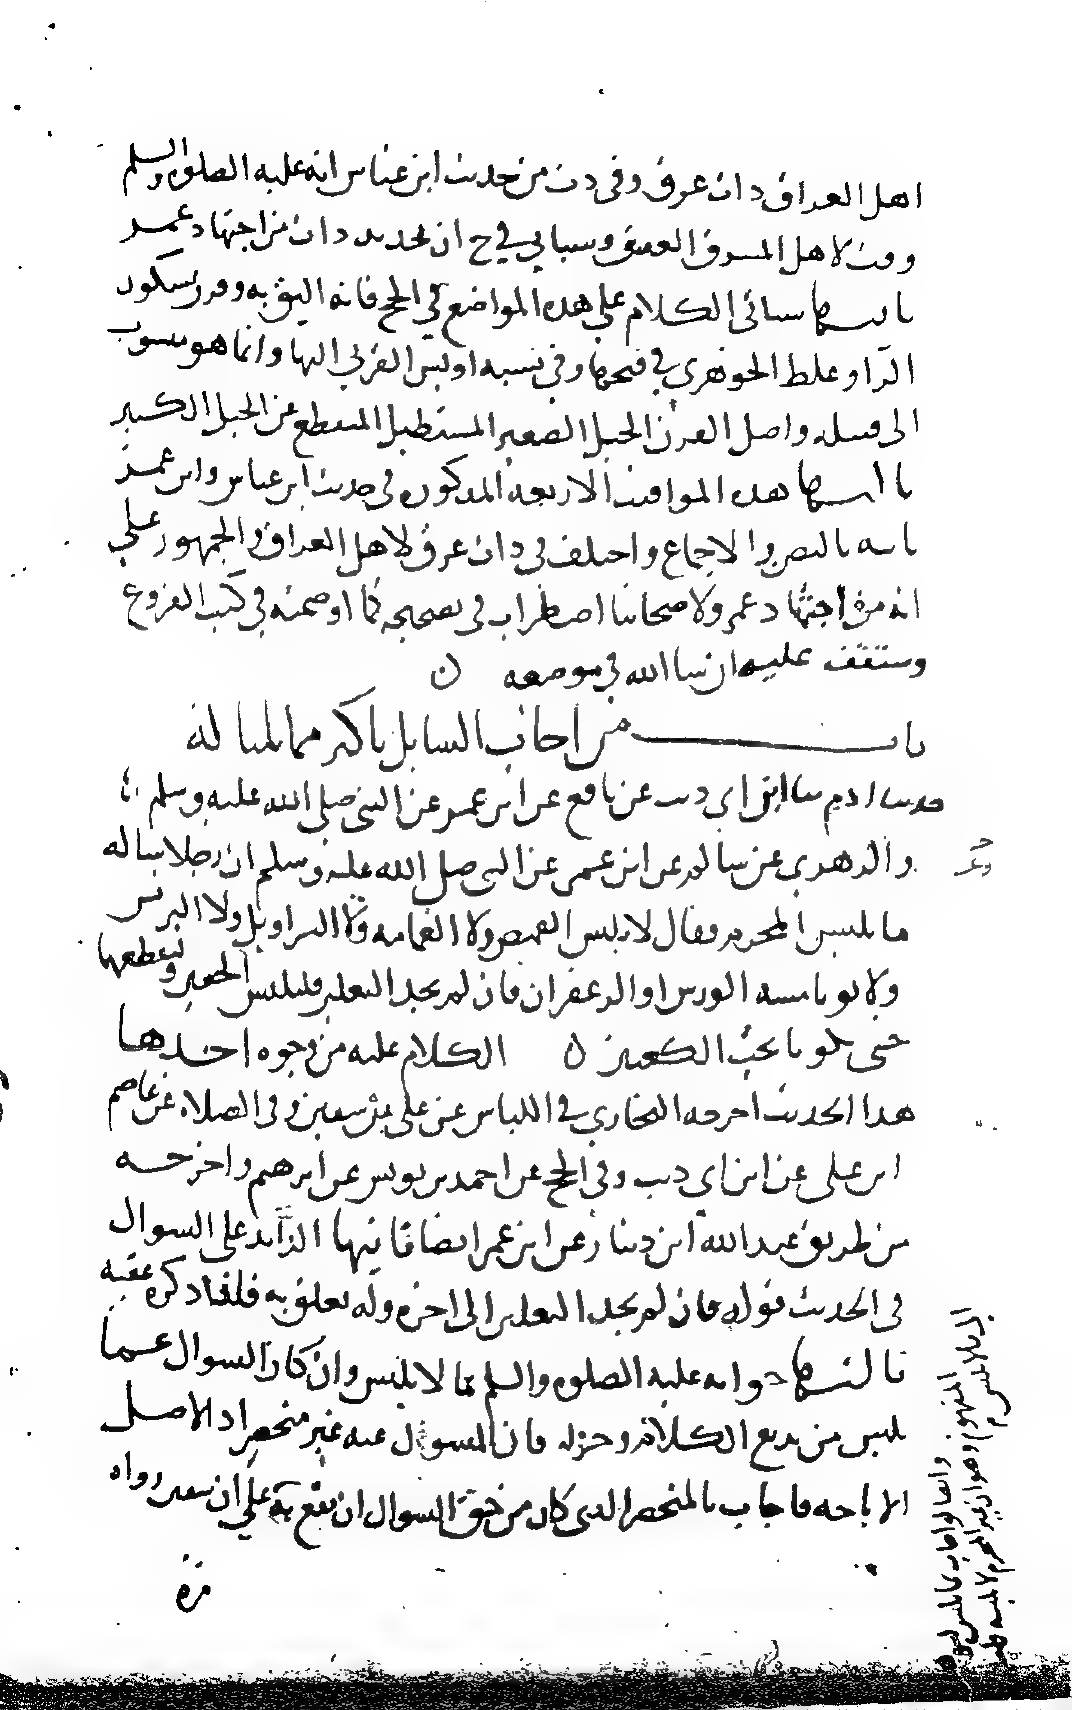 اهل العراق ذات عرق وفى دت من حديث ابن عباس انه عليه الصلوه والسلم
وقت لاهل المشرق العقيق وسياتي في ح ان تحديد ذات من اجتهاد عمر
ثانيها سيأتى الكلام علي هذه المواضع في الحج فانه اليق به وقرن بسكون
الرا وغلط الجوهري في فتحها وفي نسبه اويس القرني اليها وانما هو منسوب
الى قبيله واصل القرن الجبل الصغير المستطيل المنقطع عن الجبل الكبير
ثالثها هذه المواقيت الاربعه المذكوره في حديث ابن عباس وابن عمر
ثابته بالنص والاجماع واختلف في ذات عرق لاهل العراق والجمهور على
انه من اجتهاد عمر ولاصحابنا اضطراب في تصحيحه كما اوضحته في كتب الفروع
وستقف عليه ان شا الله في موضعه ن
باب من اجاب السايل باكثر مما سأله
حدثنا ادم ثنا ابن ابي ذيب عن نافع عن ابن عمر عن النبي صلى الله عليه وسلم
والزهري عن سالم عن ابن عمر عن النبي صلى الله عليه وسلم ان رجلا ساله
ما يلبس المحرم فقال لا يلبس القميص ولا العمامه ولا السراويل ولا البرنس
ولا ثوبا مسه الورس او الزعفران فان لم يجد النعلين فليلبس الخفين وليقطعهما
حتى يكونا تحت الكعبين ن الكلام عليه من وجوه احدها
هذا الحديث اخرجه البخاري في اللباس عن علي عن سفين وفى الصلاه عن عاصم
ابن على عن ابن ابي ذيب وفي الحج عن احمد بن يونس عن ابرهيم واخرجه
من طريق عبد الله ابن دينار عن ابن عمر ايضا ثانيها الزايد على السوال
فى الحديث قوله فان لم يجد النعلين الى اخره وله تعلق به فلذا ذكره عقبه
ثالثها جوابه عليه الصلوه والسلم بما لا يلبس وان كان السوال عما
يلبس من بديع الكلام وجزله فان المسوول عنه غير منحصر اذ الاصل
الاباحه فاجاب بالمنحصر الذى كان من حق السوال ان يقع به علي ان سفين رواه
مره
وايضا لو اجاب بما يلبس
المفهوم وهو ان غير المحرم لا يلبسه